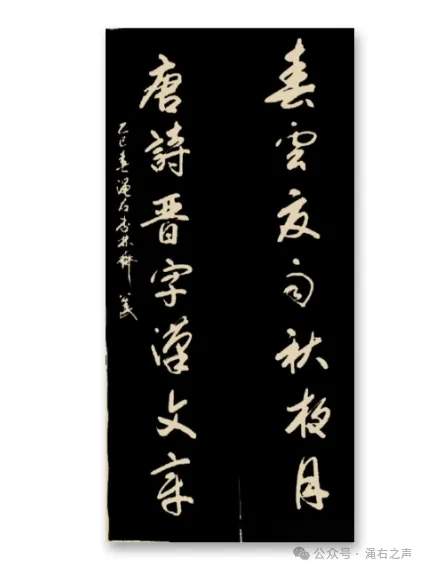 春雲夏雨秋夜月
唐詩晋字漢文章
乙巳春澠右李林
公众号 · 渑右之声